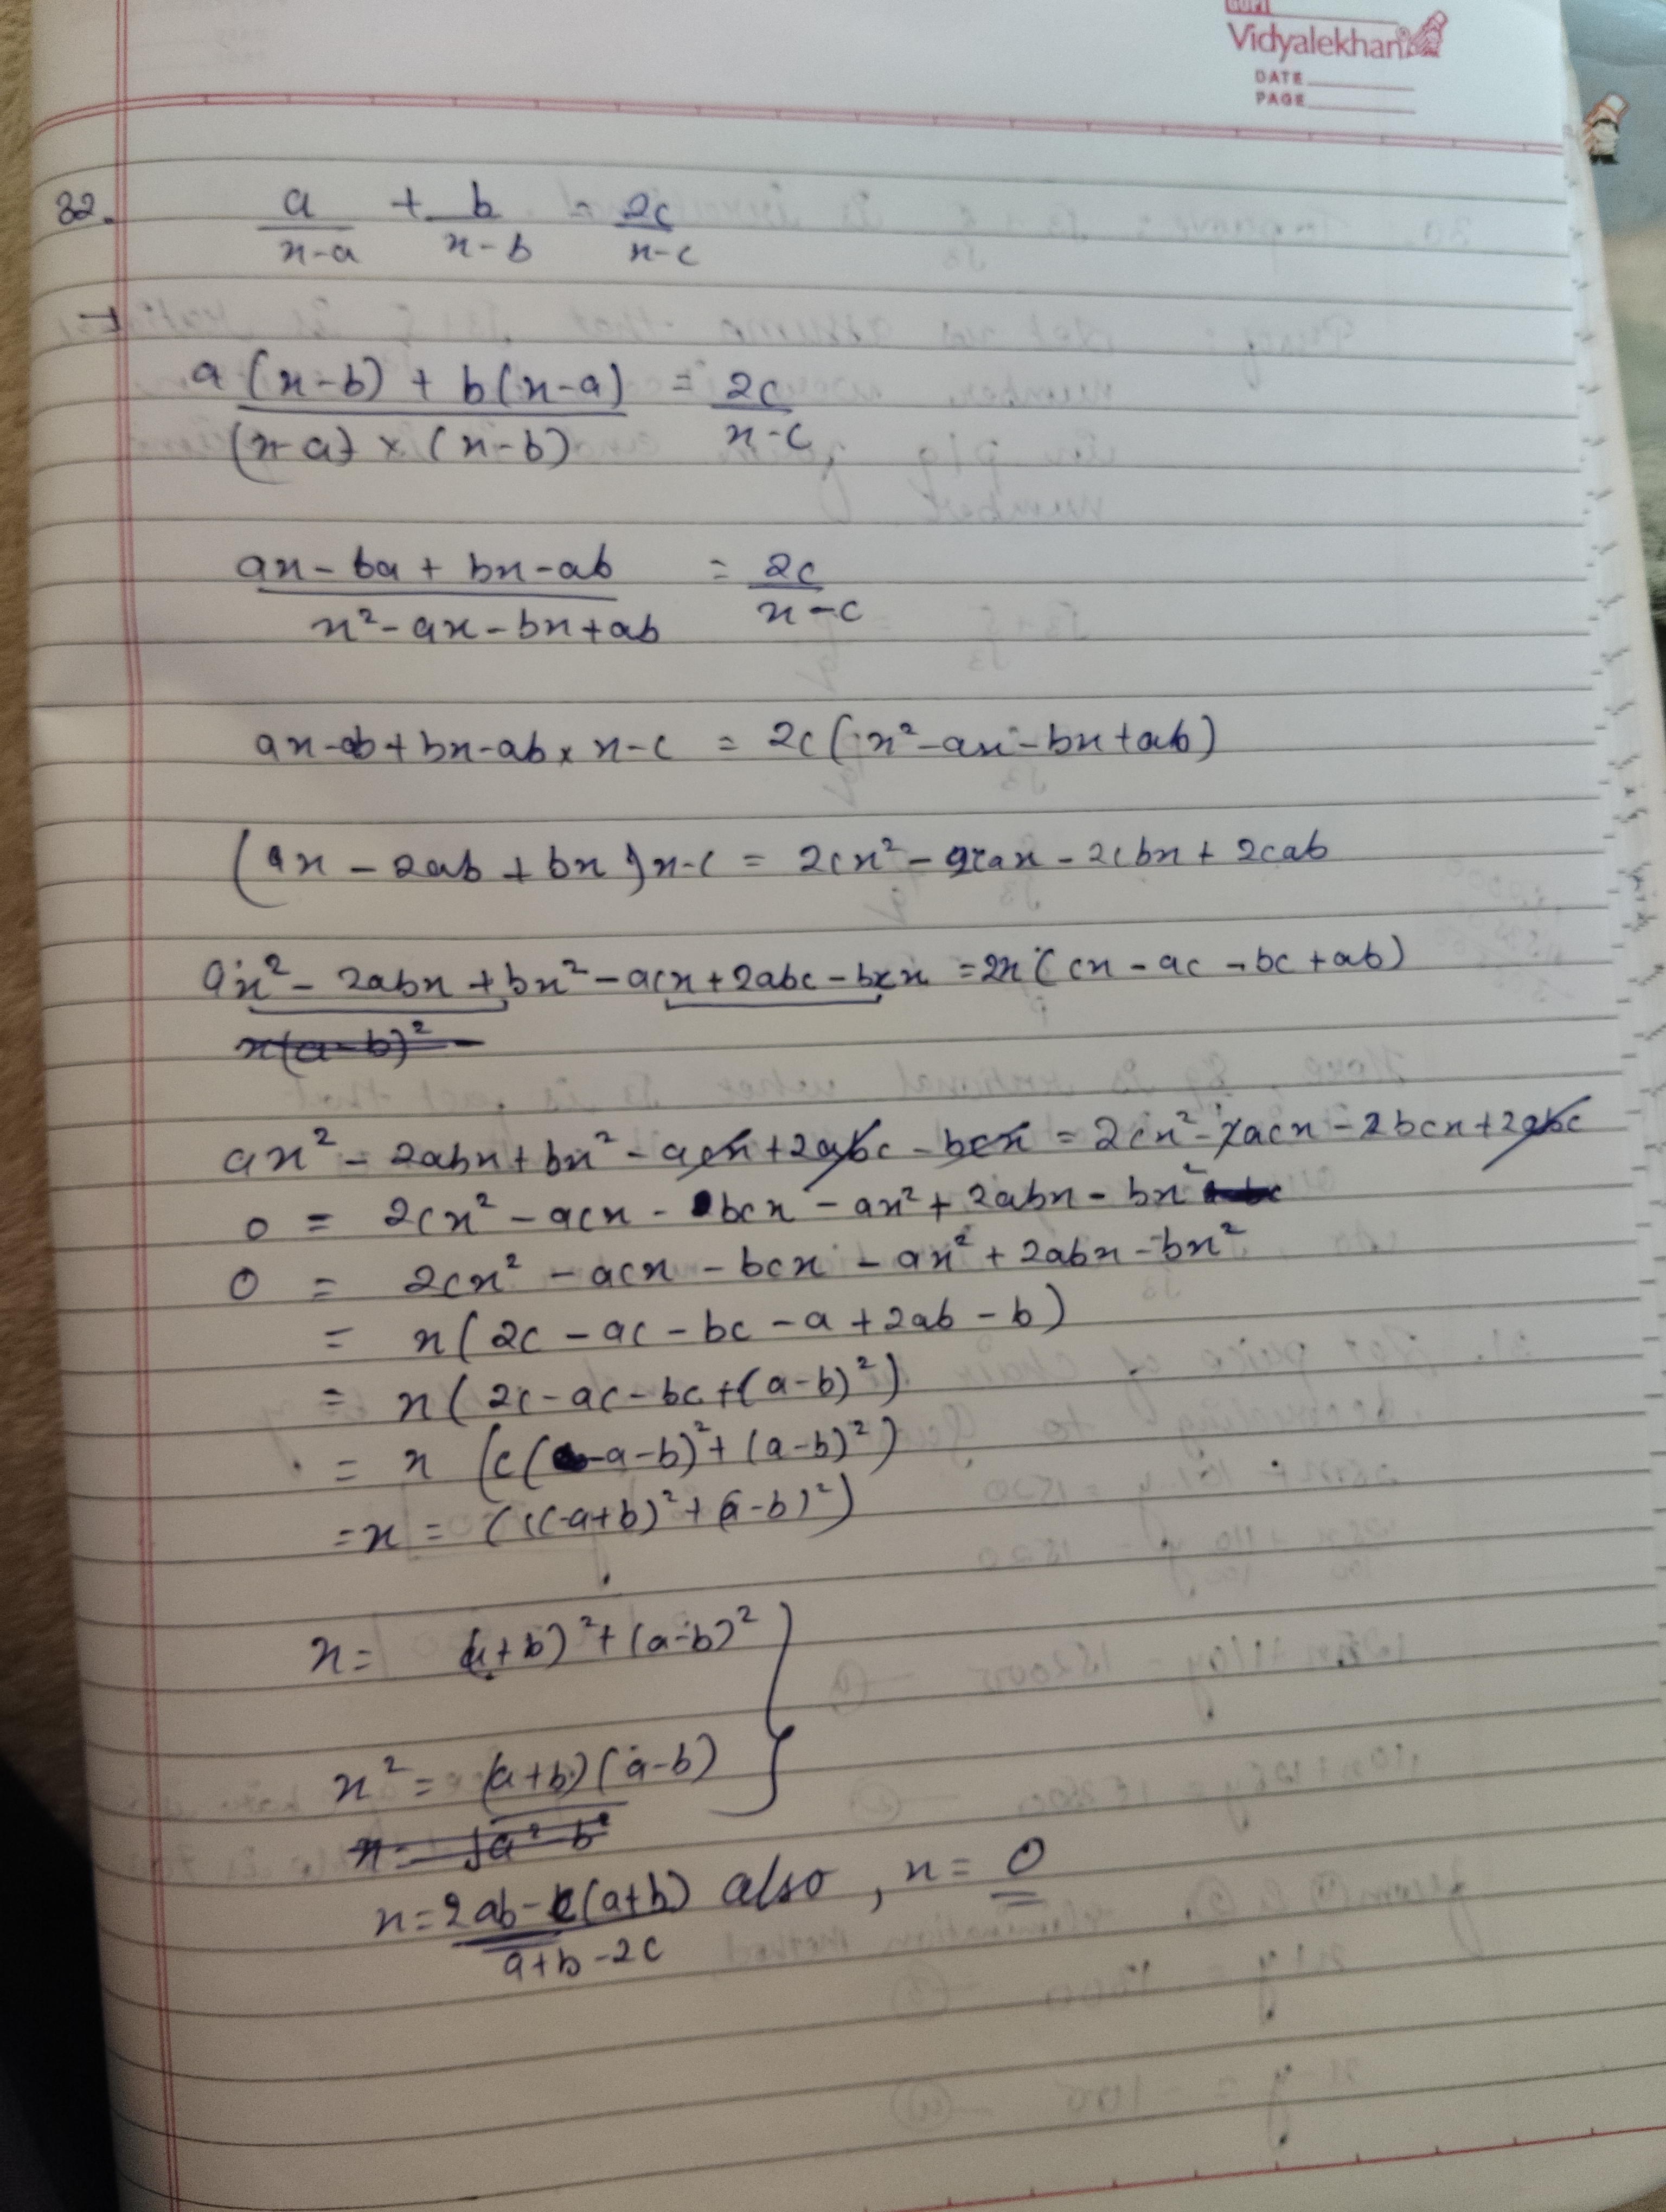 GOPI
Vidyalekhan
DATE
PAGE
32. a/(x-a) + b/(x-b) = 2c/(x-c)
→
a(x-b) + b(x-a)/(x-a) × (x-b) = 2c/(x-c)
ax - ba + bx - ab/x² - ax - bx + ab = 2c/(x-c)
ax - ab + bx - ab × x - c = 2c(x² - ax - bx + ab)
(ax - 2ab + bx) x - c = 2cx² - 2cax - 2cbx + 2cab
ax² - 2abx + bx² - acx + 2abc - bcx = 2x(cx - ac - bc + ab)
x(a-b)² -
ax² - 2abx + bx² - acx + 2abc - bcx = 2cx² - 2acx - 2bcx + 2abc
0 = 2cx² - acx - bcx - ax² + 2abx - bx²
0 = 2cx² - acx - bcx - ax² + 2abx - bx²
= x(2c - ac - bc - a + 2ab - b)
= x(2c - ac - bc + (a-b)²)
= x (c(-a-b)² + (a-b)²)
= x = (c(-a+b)² + (a-b)²)
x = (a+b)² + (a-b)²
x² = (a+b)(a-b)
x = √a²-b²
x = 2ab - c(a+b)/a+b-2c also, x = 0